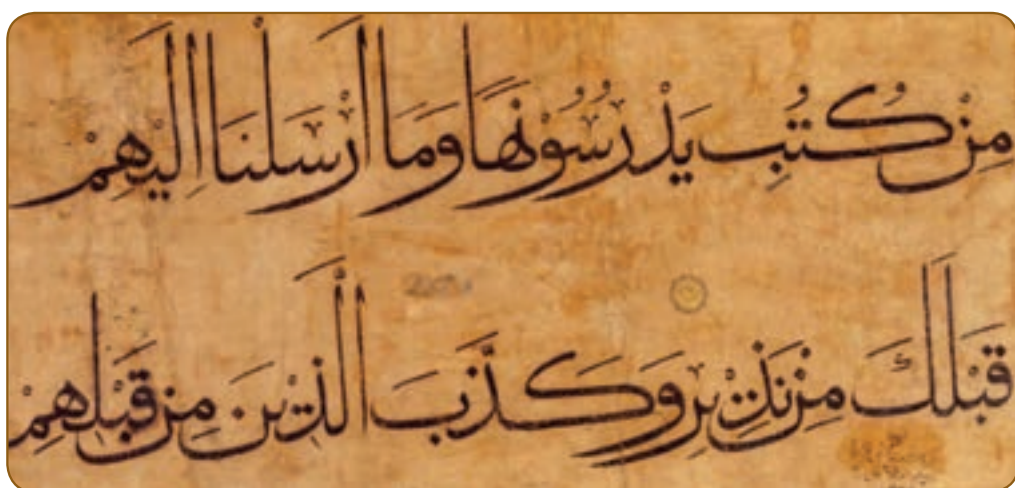 مِنْ كُتُبٍ يَدْرُسُونَهَا وَمَا اَرْسَلْنَا اِلَيْهِمْ
قَبْلَكَ مِنْ نَذِيْرٍ وَكَذَّبَ الَّذِيْنَ مِنْ قَبْلِهِمْ